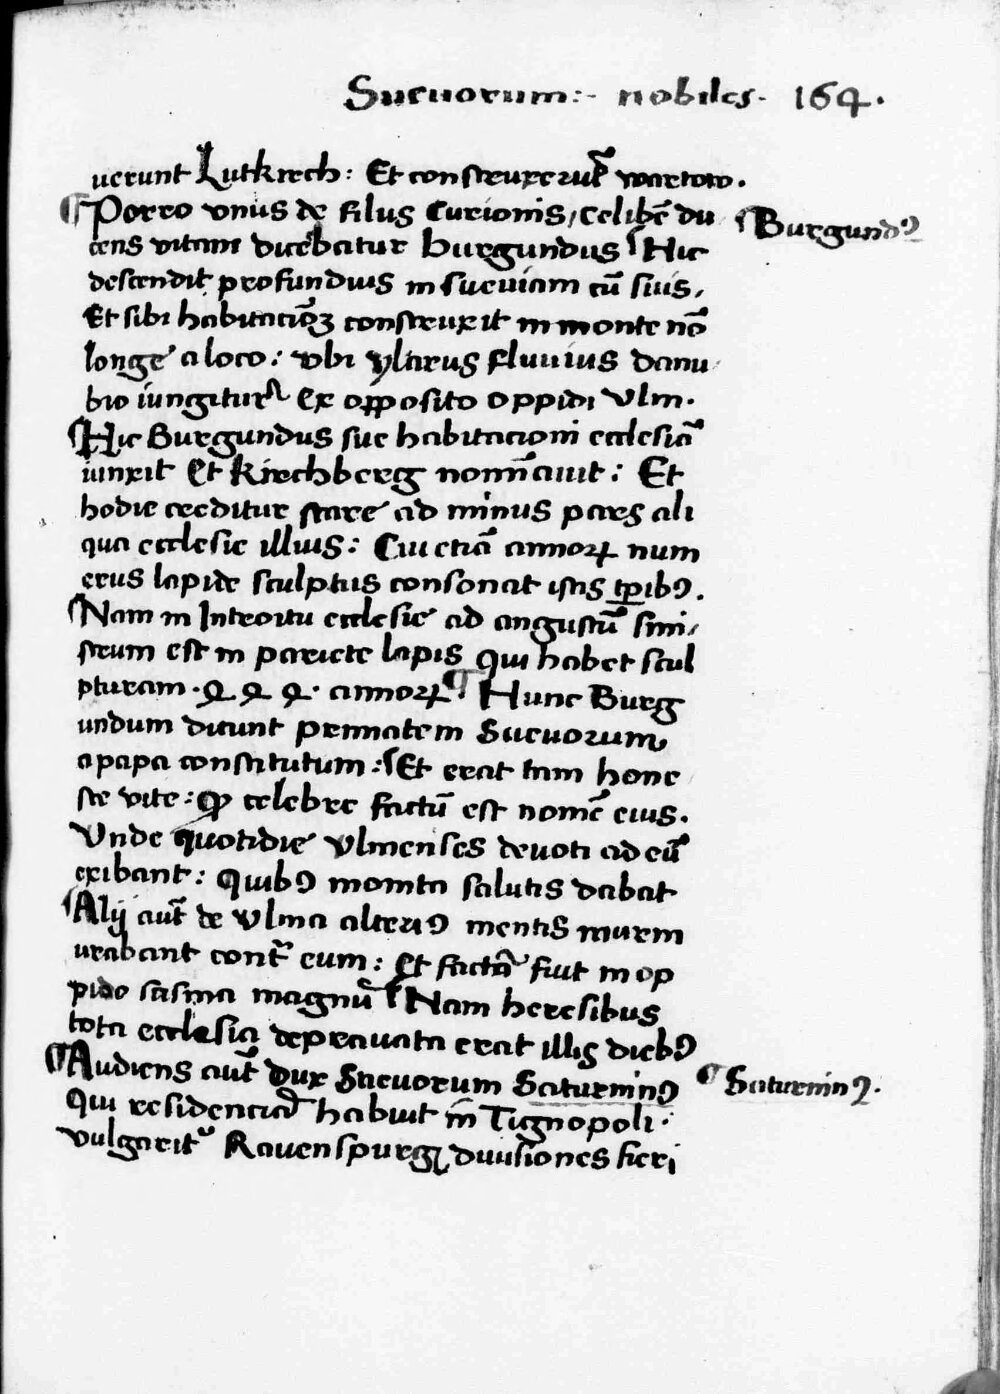 Sueuorum :- nobiles · 164 ·
uerunt Lutkirch : Et construxerũt
¶ Porro vnus de filiis Curionis, celibē du
¶ Burgund9
cens vitam dicebatur burgundus ¶ Hic
descendit profundius in sueuiam cū suis,
Et sibi habitacōꝫ construxit in monte nō
longe a loco : vbi ylarus fluuius danu
bio iungitur Ex opposito oppidi Vlm.
¶ Hic Burgundus sue habitacioni ecclesiā
iunxit Et Kirchberg nomīauit : Et
hodie creditur stare ad minus pars ali
qua ecclesie illius : Cui etiā annoꝝ num
erus lapide sculptus consonat istis tp̄ib9.
¶ Nam in Introitu ecclesie ad angustū sini,
strum est in pariete lapis qui habet scul
pturam · annoꝝ. ¶ Hunc Burg
undum dicunt Sueuorum
a papa constitutum : ¶ Et erat tam hone
ste vite : ꝙ celebre factū est nomē eius.
Vnde quotidie Vlmenses deuoti ad eū
exibant : Quib9 momta salutis dabat
¶ Alij aūt de Vlma alteri9 mentis murm
urabant contr̄ eum : Et factā fuit in op
pido sasma magnū ¶ Nam heresibus
tota ecclesia deprauata erat illis dieb9
¶ Audiens aūt dux Sueuorum Saturnin9
¶ Saturnin9.
Qui residenciā habuit in Tignopoli ·
vulgarit᷑ Rauenspurg diuisiones fieri